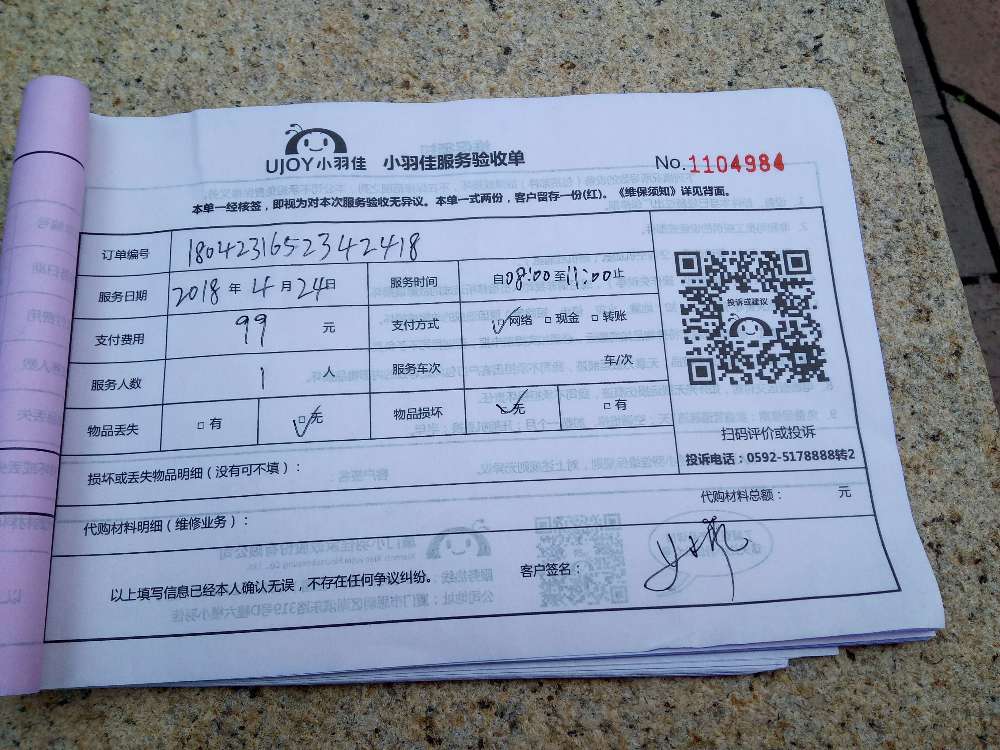 UJOY小羽佳 小羽佳服务验收单
No.1104984
本单一经核签，即视为对本次服务验收无异议。本单一式两份，客户留存一份(红)。《维保须知》详见背面。
订单编号 1804231652342418
服务日期 2018 年 4 月 24 日 服务时间 自 08:00 至 11:00 止
支付费用 99 元 支付方式 ☑网络 □现金 □转账
服务人数 1 人 服务车次 车/次
物品丢失 □有 ☑无 物品损坏 ☑无 □有
投诉或建议
扫码评价或投诉
投诉电话：0592-5178888转2
损坏或丢失物品明细（没有可不填）：
代购材料明细（维修业务）： 代购材料总额： 元
以上填写信息已经本人确认无误，不存在任何争议纠纷。 客户签名：